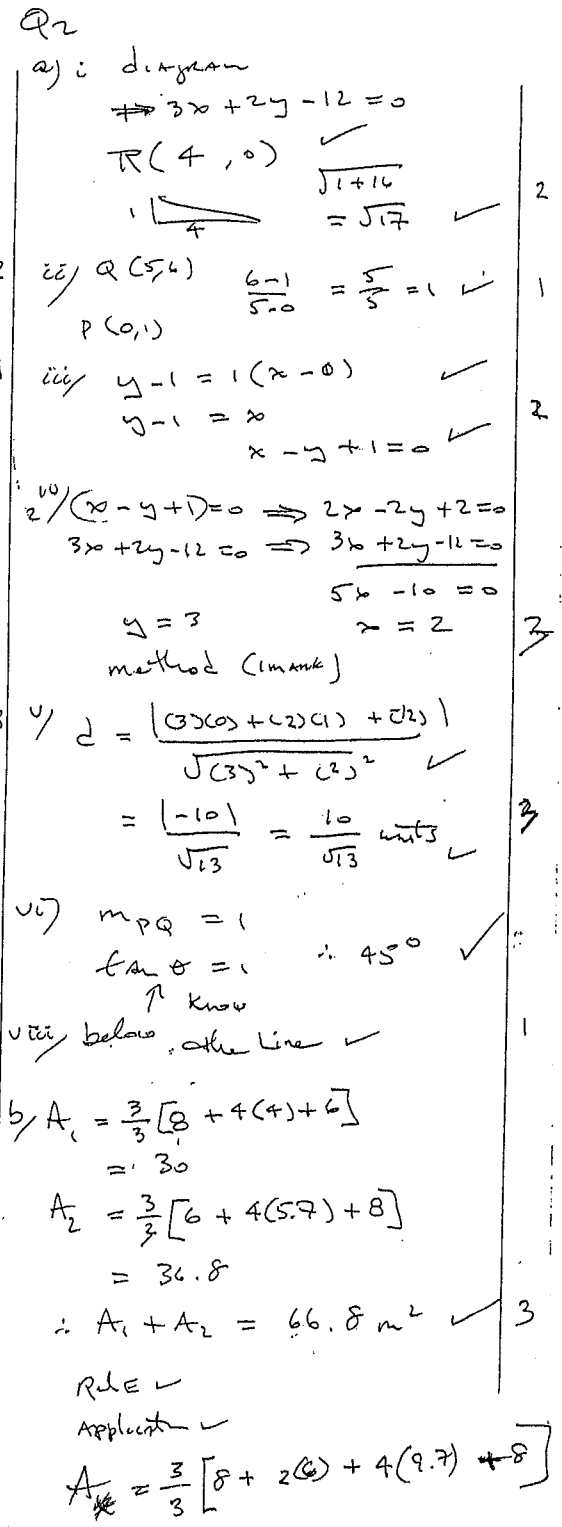 Q2
a) i diagram
3x + 2y - 12 = 0
R(4, 0) ✓
√1+16
1 4 = √17 ✓ 2
ii) Q(5,6) 6-1/5-0 = 5/5 = 1 ✓ 1
P(0,1)
iii) y - 1 = 1(x - 0) ✓
y - 1 = x 2
x - y + 1 = 0 ✓
iv) (x - y + 1) = 0 ⇒ 2x - 2y + 2 = 0
3x + 2y - 12 = 0 ⇒ 3x + 2y - 12 = 0
5x - 10 = 0
y = 3 x = 2
method (1 mark)
v) d = |(3)(0) + (2)(1) + (-12)| / √(3)² + (2)² ✓
= |-10|/√13 = 10/√13 units ✓
vi) mPQ = 1
tan θ = 1 ∴ 45° ✓
↑ know
viii) below the line ✓ 1
b) A₁ = 3/3 [8 + 4(4) + 6]
= 30
A₂ = 3/3 [6 + 4(5.7) + 8]
= 36.8
∴ A₁ + A₂ = 66.8 m² ✓ 3
Rule ✓
Application ✓
A = 3/3 [8 + 2(6) + 4(9.7) + 8]